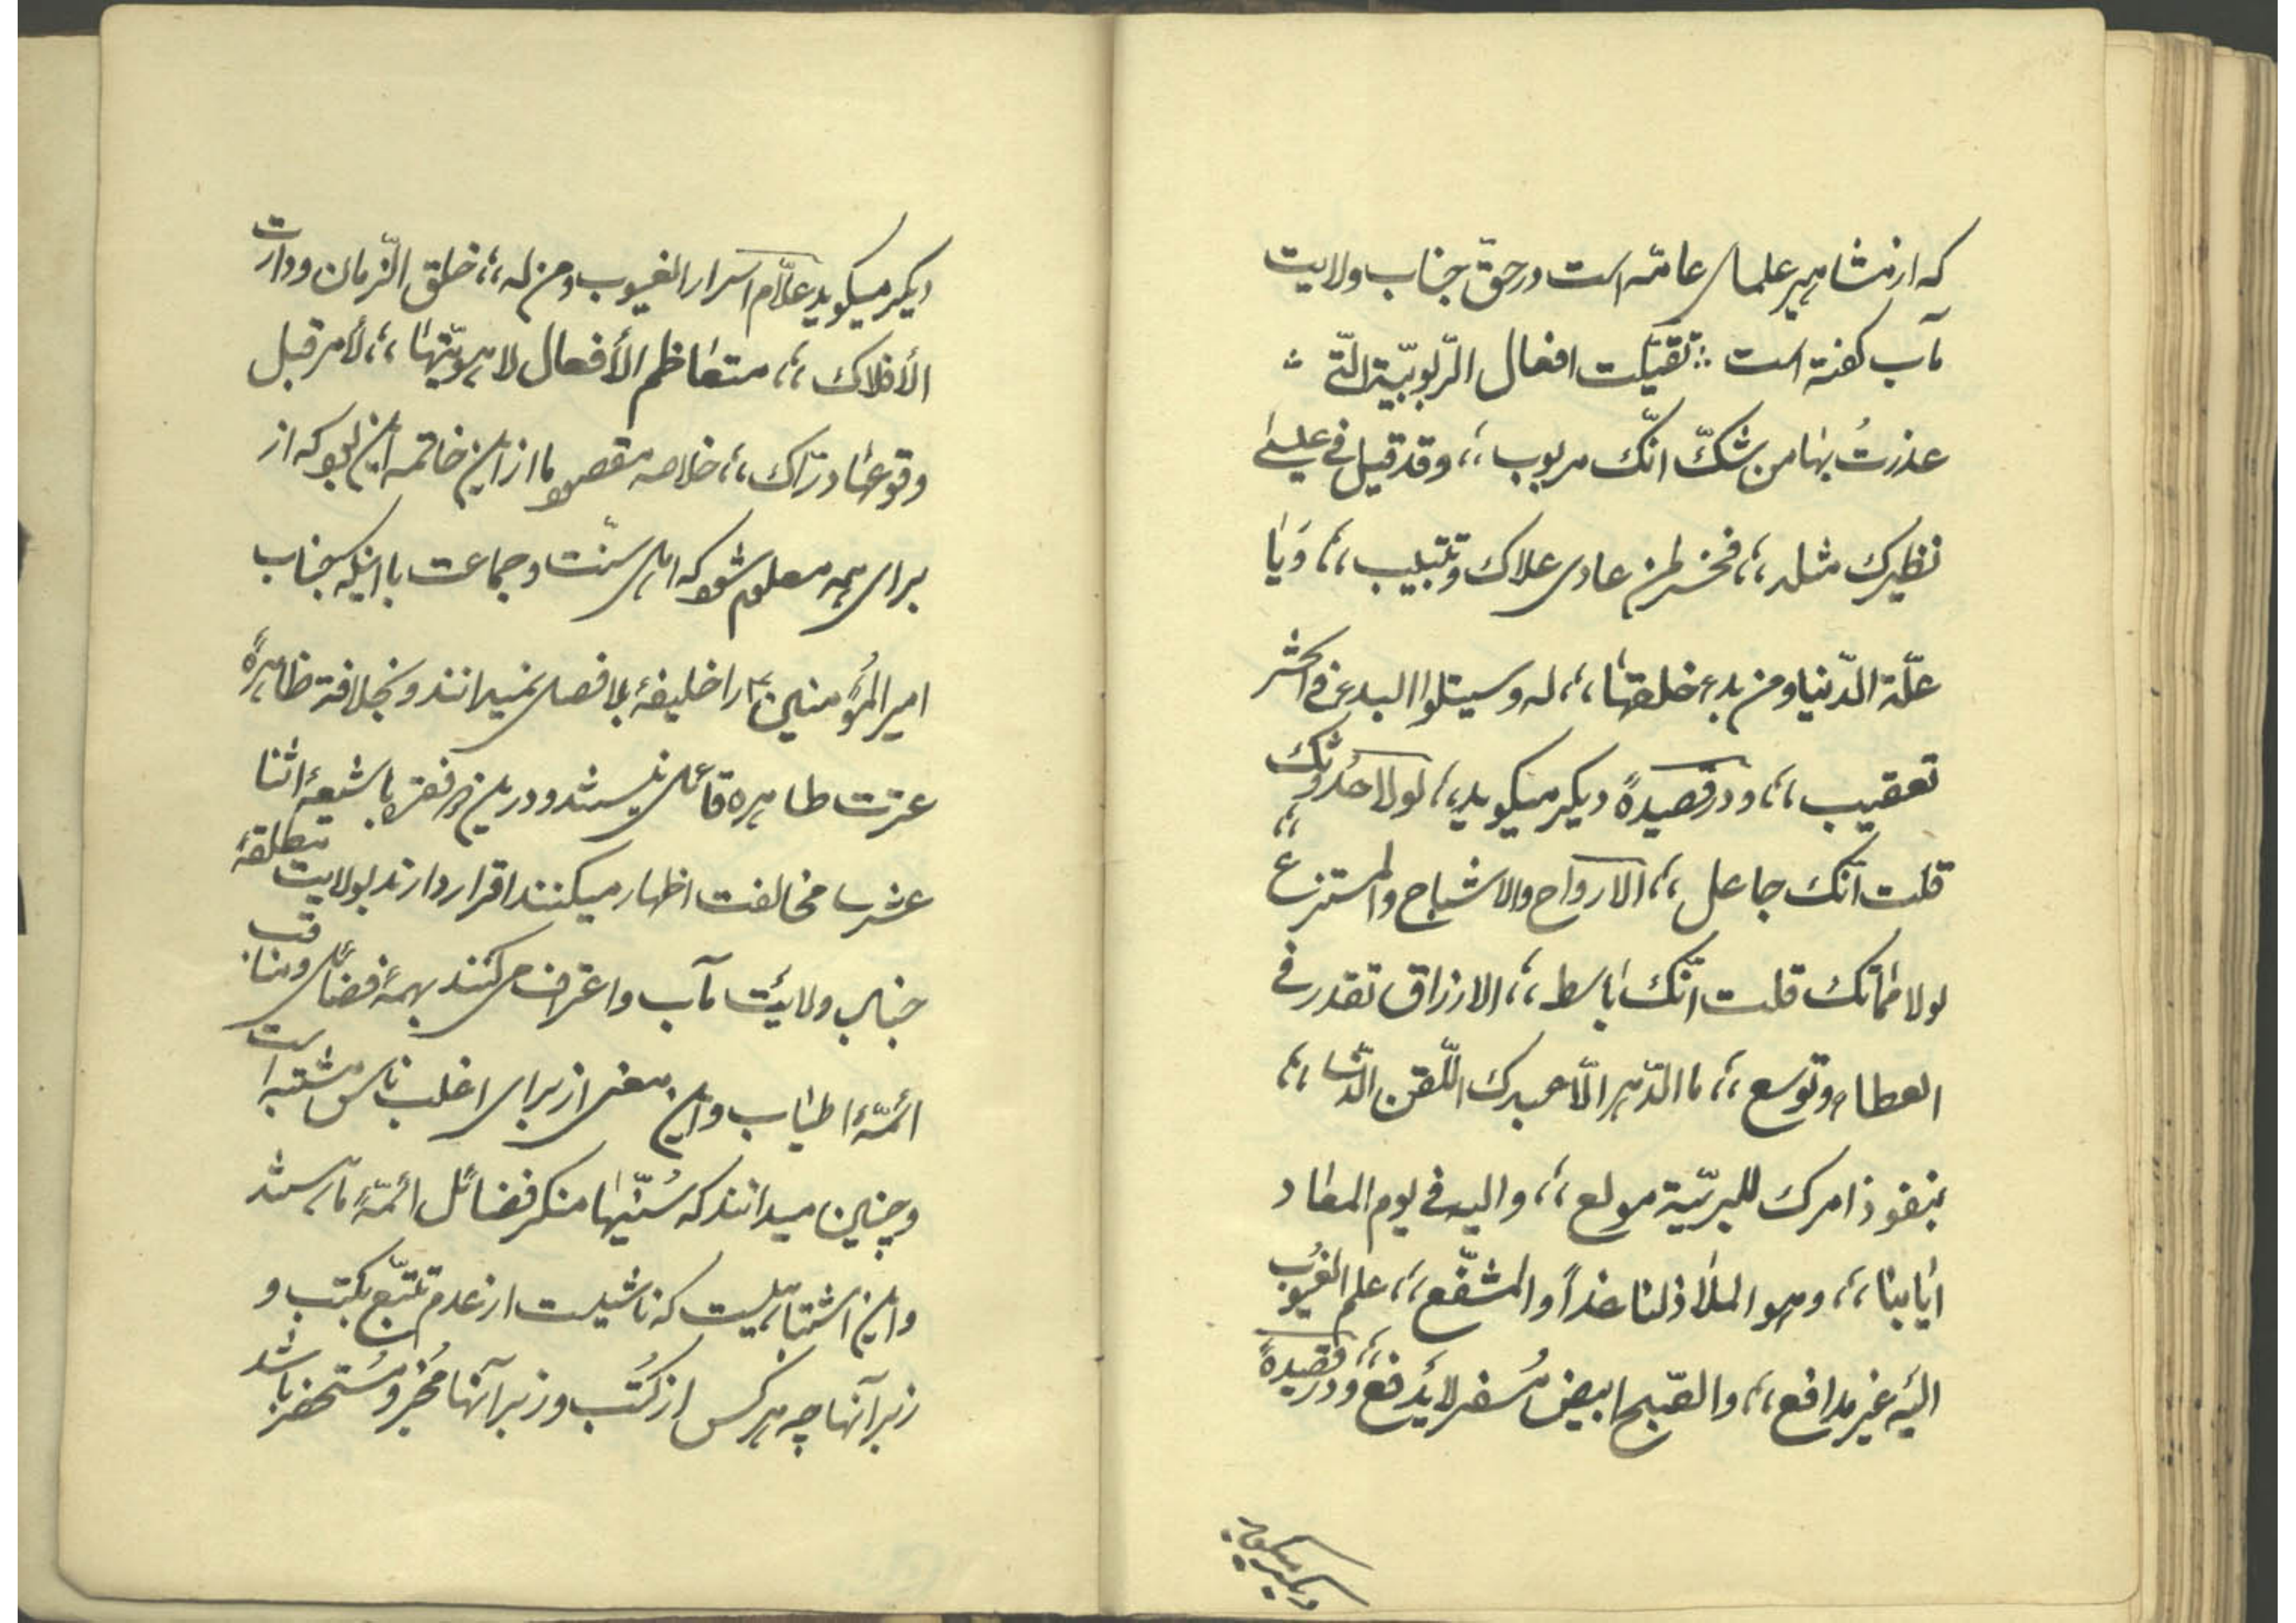 که از مشاهیر علمای عامّه است در حقّ جناب ولایت
مآب کفته است ∴ تقیّلت افعال الرّبوبیّة الّتی ∴
عذرتُ بها من شکّ انّک مربوب ،، وقد قیل فی عیسٰی
نظیرک مثله ،، فخسر لمن عادی علاک وتتبیب ،، وَیٰا
علّة الدّنیا ومن بدء خلقهٰا ،، له وسیتلوا البدء فی الحشر
تعقیب ،، و در قصیدهً دیکر میکوید ،، لولا حُدوثک
قلت انّک جاعل ،، الارواح والاشباح والمستنزع ،،
لولا مماتک قلت انّک بٰاسط ،، الارزاق تقدر فی
العطاء وتوسع ،، ما الدّهر الّا عبدک القنّ الّذی ،،
بنفوذ امرک للبریّة مولع ،، والیه فی یوم المعٰاد
ایٰابنا ،، وهو الملٰاذ لنا غداً والمشفّع ،، علم الغُیُوب
الیه غیر مدافع ،، والصّبح ابیض مُسفر لایُدفع ،، و در قصیدهً
دیکر میکوید
دیکر میکوید علّام اسرار الغیوب ومن له ،، خلق الزّمان ودارت
الأفلاک ،، متعٰاظم الأفعال لاهوتیّهٰا ،، لأمر قبل
وقوعهٰا درّاک ،، خلاصه مقصود ما از این خاتمه این بود که از
برای همه معلوم شود که اهل سنّت و جماعت با اینکه جناب
امیر المُؤمنین ؑ را خلیفهٔ بلا فصل نمیدانند و بخلافة ظاهرهً
عترت طاهره قائل نیستند و در این دو فقره با شیعهٔ اثنا
عشریه مخالفت اظهار میکنند اقرار دارند بولایت مطلقهٔ
جناب ولایت مآب و اعتراف می کنند بهمهٔ فضائل و مناقب
ائمّهٔ اطیٰاب و این معنی از برای اغلب ناس مشتبه است
و چنین میدانند که سُنّیهٰا منکر فضائل ائمّهٔ ما هستند
و این اشتباهیست که ناشیست از عدم تتبّع بکتب و
زبر آنها چه هر کس از کُتب و زبر آنها مُخبر و مُستحضر باشد